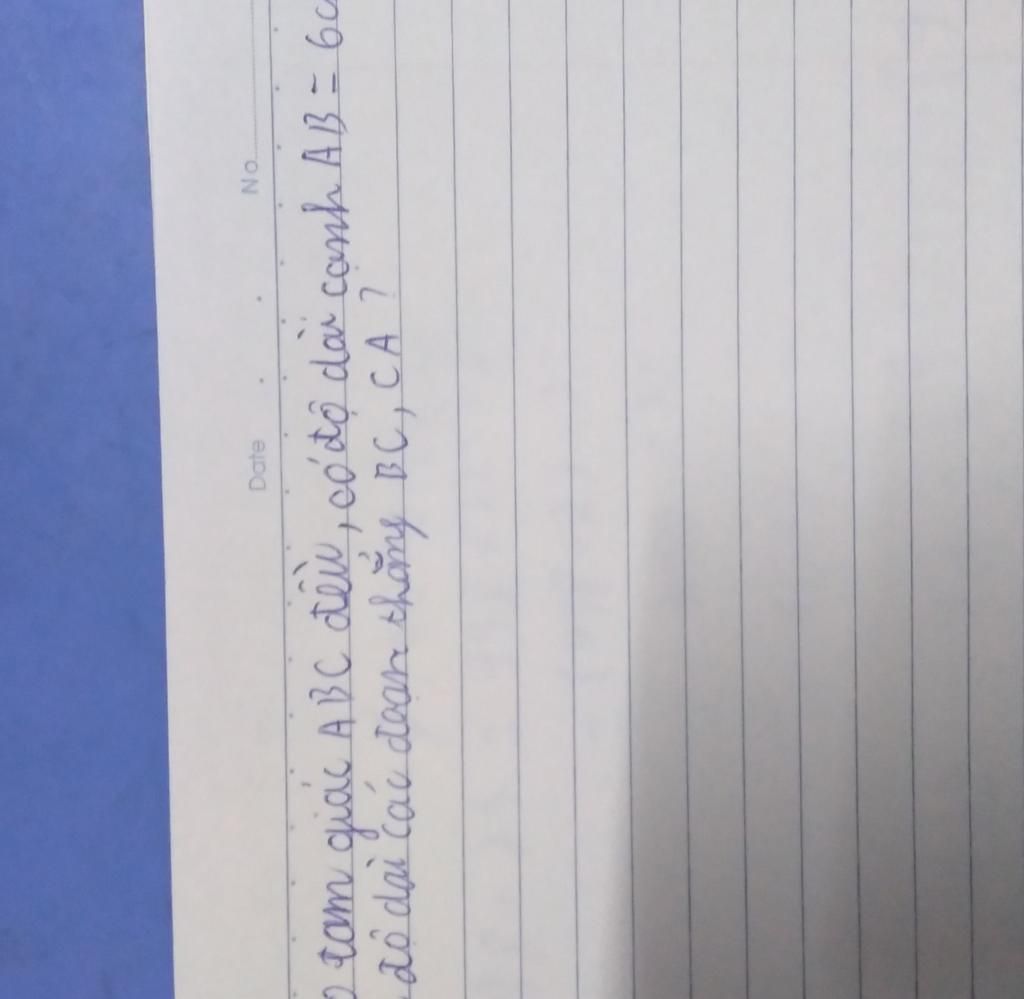 Date No
tam giác ABC đều, có độ dài cạnh AB = 6c
độ dài các đoạn thẳng BC, CA?